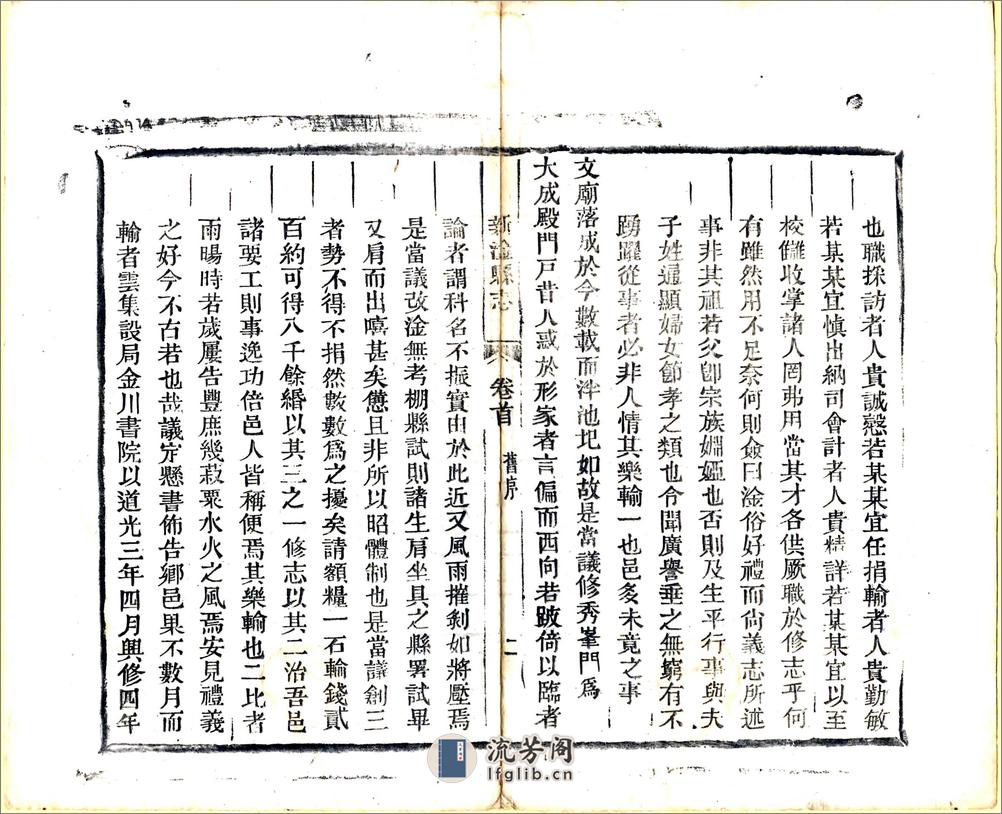 也職採訪者人貴誠慤若某某宜任捐輸者人貴勤敏
若某某宜慎出納司會計者人貴精詳若某某宜以至
校讎收掌諸人罔弗用當其才各供厥職於修志乎何
有雖然用不足奈何則僉曰淦俗好禮而尚義志所述
事非其祖若父卽宗族婣婭也否則及生平行事與夫
子姓通顯婦女節孝之類也令聞廣譽垂之無窮有不
踴躍從事者必非人情其樂輸一也邑多未竟之事
文廟落成於今數載而泮池圮如故是當議修秀峯門爲
大成殿門戸昔人惑於形家者言偏而西向若跛倚以臨者
新淦縣志
卷首
舊序
二
論者謂科名不振實由於此近又風雨摧剝如將壓焉
是當議改淦無考棚縣試則諸生肩坐具之縣署試畢
又肩而出嘻甚矣憊且非所以昭體制也是當議創三
者勢不得不捐然數數爲之擾矣請額糧一石輸錢貳
百約可得八千餘緡以其三之一修志以其二治吾邑
諸要工則事逸功倍邑人皆稱便焉其樂輸也二比者
雨暘時若歲屢告豐庶幾菽粟水火之風焉安見禮義
之好今不古若也哉議定懸書佈告鄉邑果不數月而
輸者雲集設局金川書院以道光三年四月興修四年
流芳阁
lfglib.cn